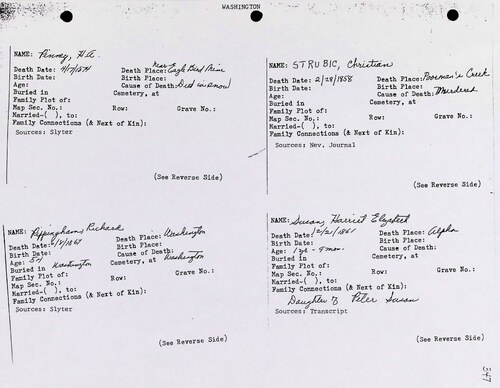 WASHINGTON
NAME: Penney, H.A.
Death Date: 4/17/1874 Death Place: near Eagle Bird Mine
Birth Date: Birth Place:
Age: Cause of Death: Died in snow
Buried in Cemetery, at
Family Plot of:
Map Sec. No.: Row: Grave No.:
Married-( ), to:
Family Connections (& Next of Kin):
Sources: Slyter
(See Reverse Side)
NAME: STRUBIC, Christian
Death Date: 2/28/1858 Death Place: Poorman's Creek
Birth Date: Birth Place:
Age: Cause of Death: Murdered
Buried in Cemetery, at
Family Plot of:
Map Sec. No.: Row: Grave No.:
Married-( ), to:
Family Connections (& Next of Kin):
Sources: Nev. Journal
(See Reverse Side)
NAME: Peppingham, Richard
Death Date: /1867 Death Place: Washington
Birth Date: Birth Place:
Age: 54 Cause of Death:
Buried in Washington Cemetery, at Washington
Family Plot of:
Map Sec. No.: Row: Grave No.:
Married-( ), to:
Family Connections (& Next of Kin):
Sources: Slyter
(See Reverse Side)
NAME: Susan, Harriet Elizabeth
Death Date: 12/21/1861 Death Place: Alpha
Birth Date: Birth Place:
Age: 1 yr - 9 mon. Cause of Death:
Buried in Cemetery, at
Family Plot of:
Map Sec. No.: Row: Grave No.:
Married-( ), to:
Family Connections (& Next of Kin):
Daughter of Peter Susan
Sources: Transcript
(See Reverse Side)
347